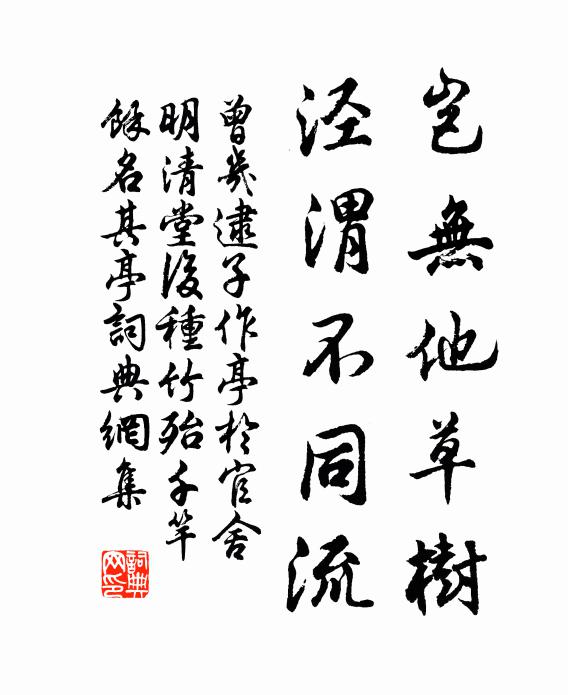 豈無他草樹
涇渭不同流
曾幾逮子作亭於官舍
明清堂後種竹殆千竿
餘名其亭詞典網集
詞典網印